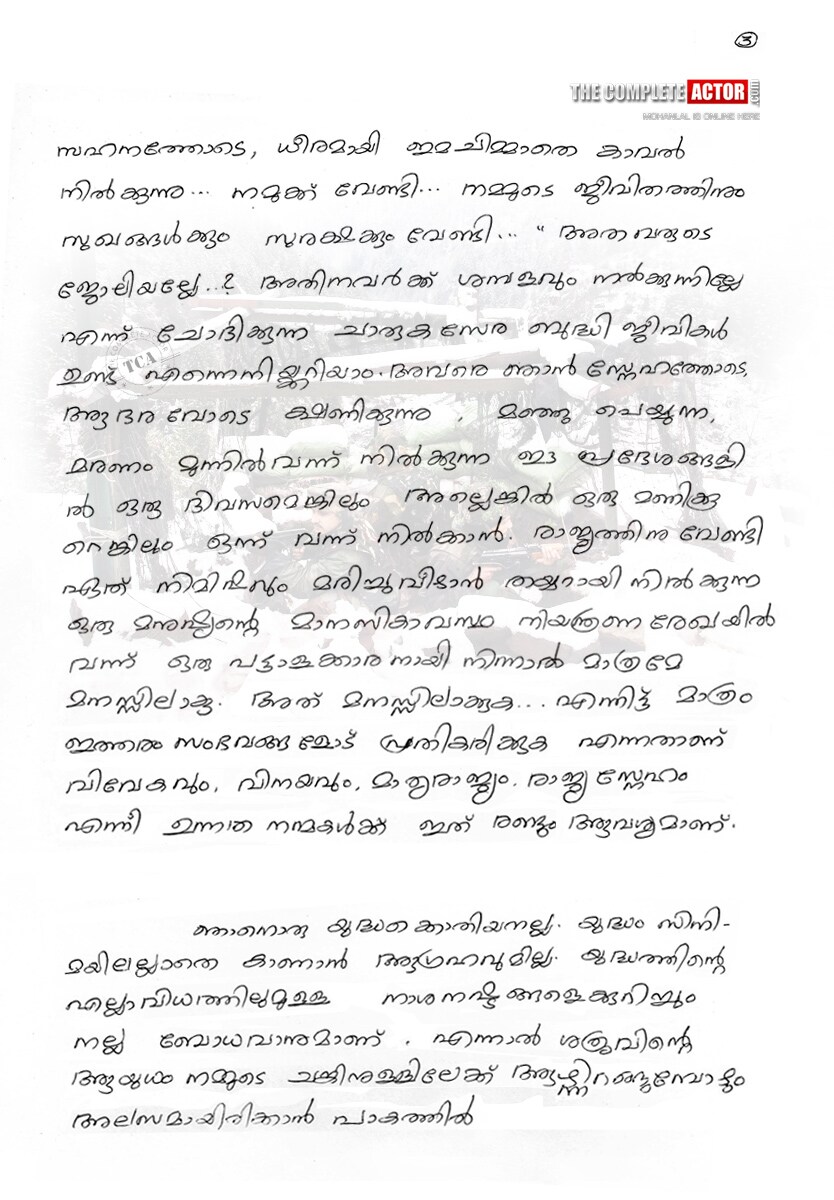 ③
THE COMPLETE ACTOR .COM
MOHANLAL IS ONLINE HERE
സഹനത്തോടെ, ധീരമായി ഇമചിമ്മാതെ കാവൽ
നിൽക്കുന്നു... നമുക്ക് വേണ്ടി... നമ്മുടെ ജീവിതത്തിനും
സുഖങ്ങൾക്കും സുരക്ഷക്കും വേണ്ടി... “ അതവരുടെ
ജോലിയല്ലേ..? അതിനവർക്ക് ശമ്പളവും നൽകുന്നില്ലേ
എന്ന് ചോദിക്കുന്ന ചാരുകസേര ബുദ്ധി ജീവികൾ
ഉണ്ട് എന്നെനിയ്ക്കറിയാം. അവരെ ഞാൻ സ്നേഹത്തോടെ,
TCA
ആദരവോടെ ക്ഷണിക്കുന്നു , മഞ്ഞു പെയ്യുന്ന,
മരണം മുന്നിൽവന്ന് നിൽക്കുന്ന ഈ പ്രദേശങ്ങളി
ൽ ഒരു ദിവസമെങ്കിലും അല്ലെങ്കിൽ ഒരു മണിക്കൂ
റെങ്കിലും ഒന്ന് വന്ന് നിൽക്കാൻ. രാജ്യത്തിനു വേണ്ടി
ഏത് നിമിഷവും മരിച്ചുവീഴാൻ തയ്യാറായി നിൽക്കുന്ന
ഒരു മനുഷ്യന്റെ മാനസികാവസ്ഥ നിയന്ത്രണ രേഖയിൽ
വന്ന് ഒരു പട്ടാളക്കാരനായി നിന്നാൽ മാത്രമേ
മനസ്സിലാകൂ. അത് മനസ്സിലാക്കുക... എന്നിട്ട് മാത്രം
ഇത്തരം സംഭവങ്ങളോട് പ്രതികരിക്കുക എന്നതാണ്
വിവേകവും, വിനയവും, മാതൃരാജ്യം, രാജ്യ സ്നേഹം
എന്നീ ഉന്നത നന്മകൾക്ക് ഇത് രണ്ടും ആവശ്യമാണ്.
ഞാനൊരു യുദ്ധക്കൊതിയനല്ല. യുദ്ധം സിനി-
മയിലല്ലാതെ കാണാൻ ആഗ്രഹവുമില്ല. യുദ്ധത്തിന്റെ
എല്ലാവിധത്തിലുമുള്ള നാശനഷ്ടങ്ങളെക്കുറിച്ചും
നല്ല ബോധവാനുമാണ് . എന്നാൽ ശത്രുവിന്റെ
ആയുധം നമ്മുടെ ചങ്കിനുള്ളിലേക്ക് ആഴ്ന്നിറങ്ങുമ്പോഴും
അലസമായിരിക്കാൻ പാകത്തിൽ